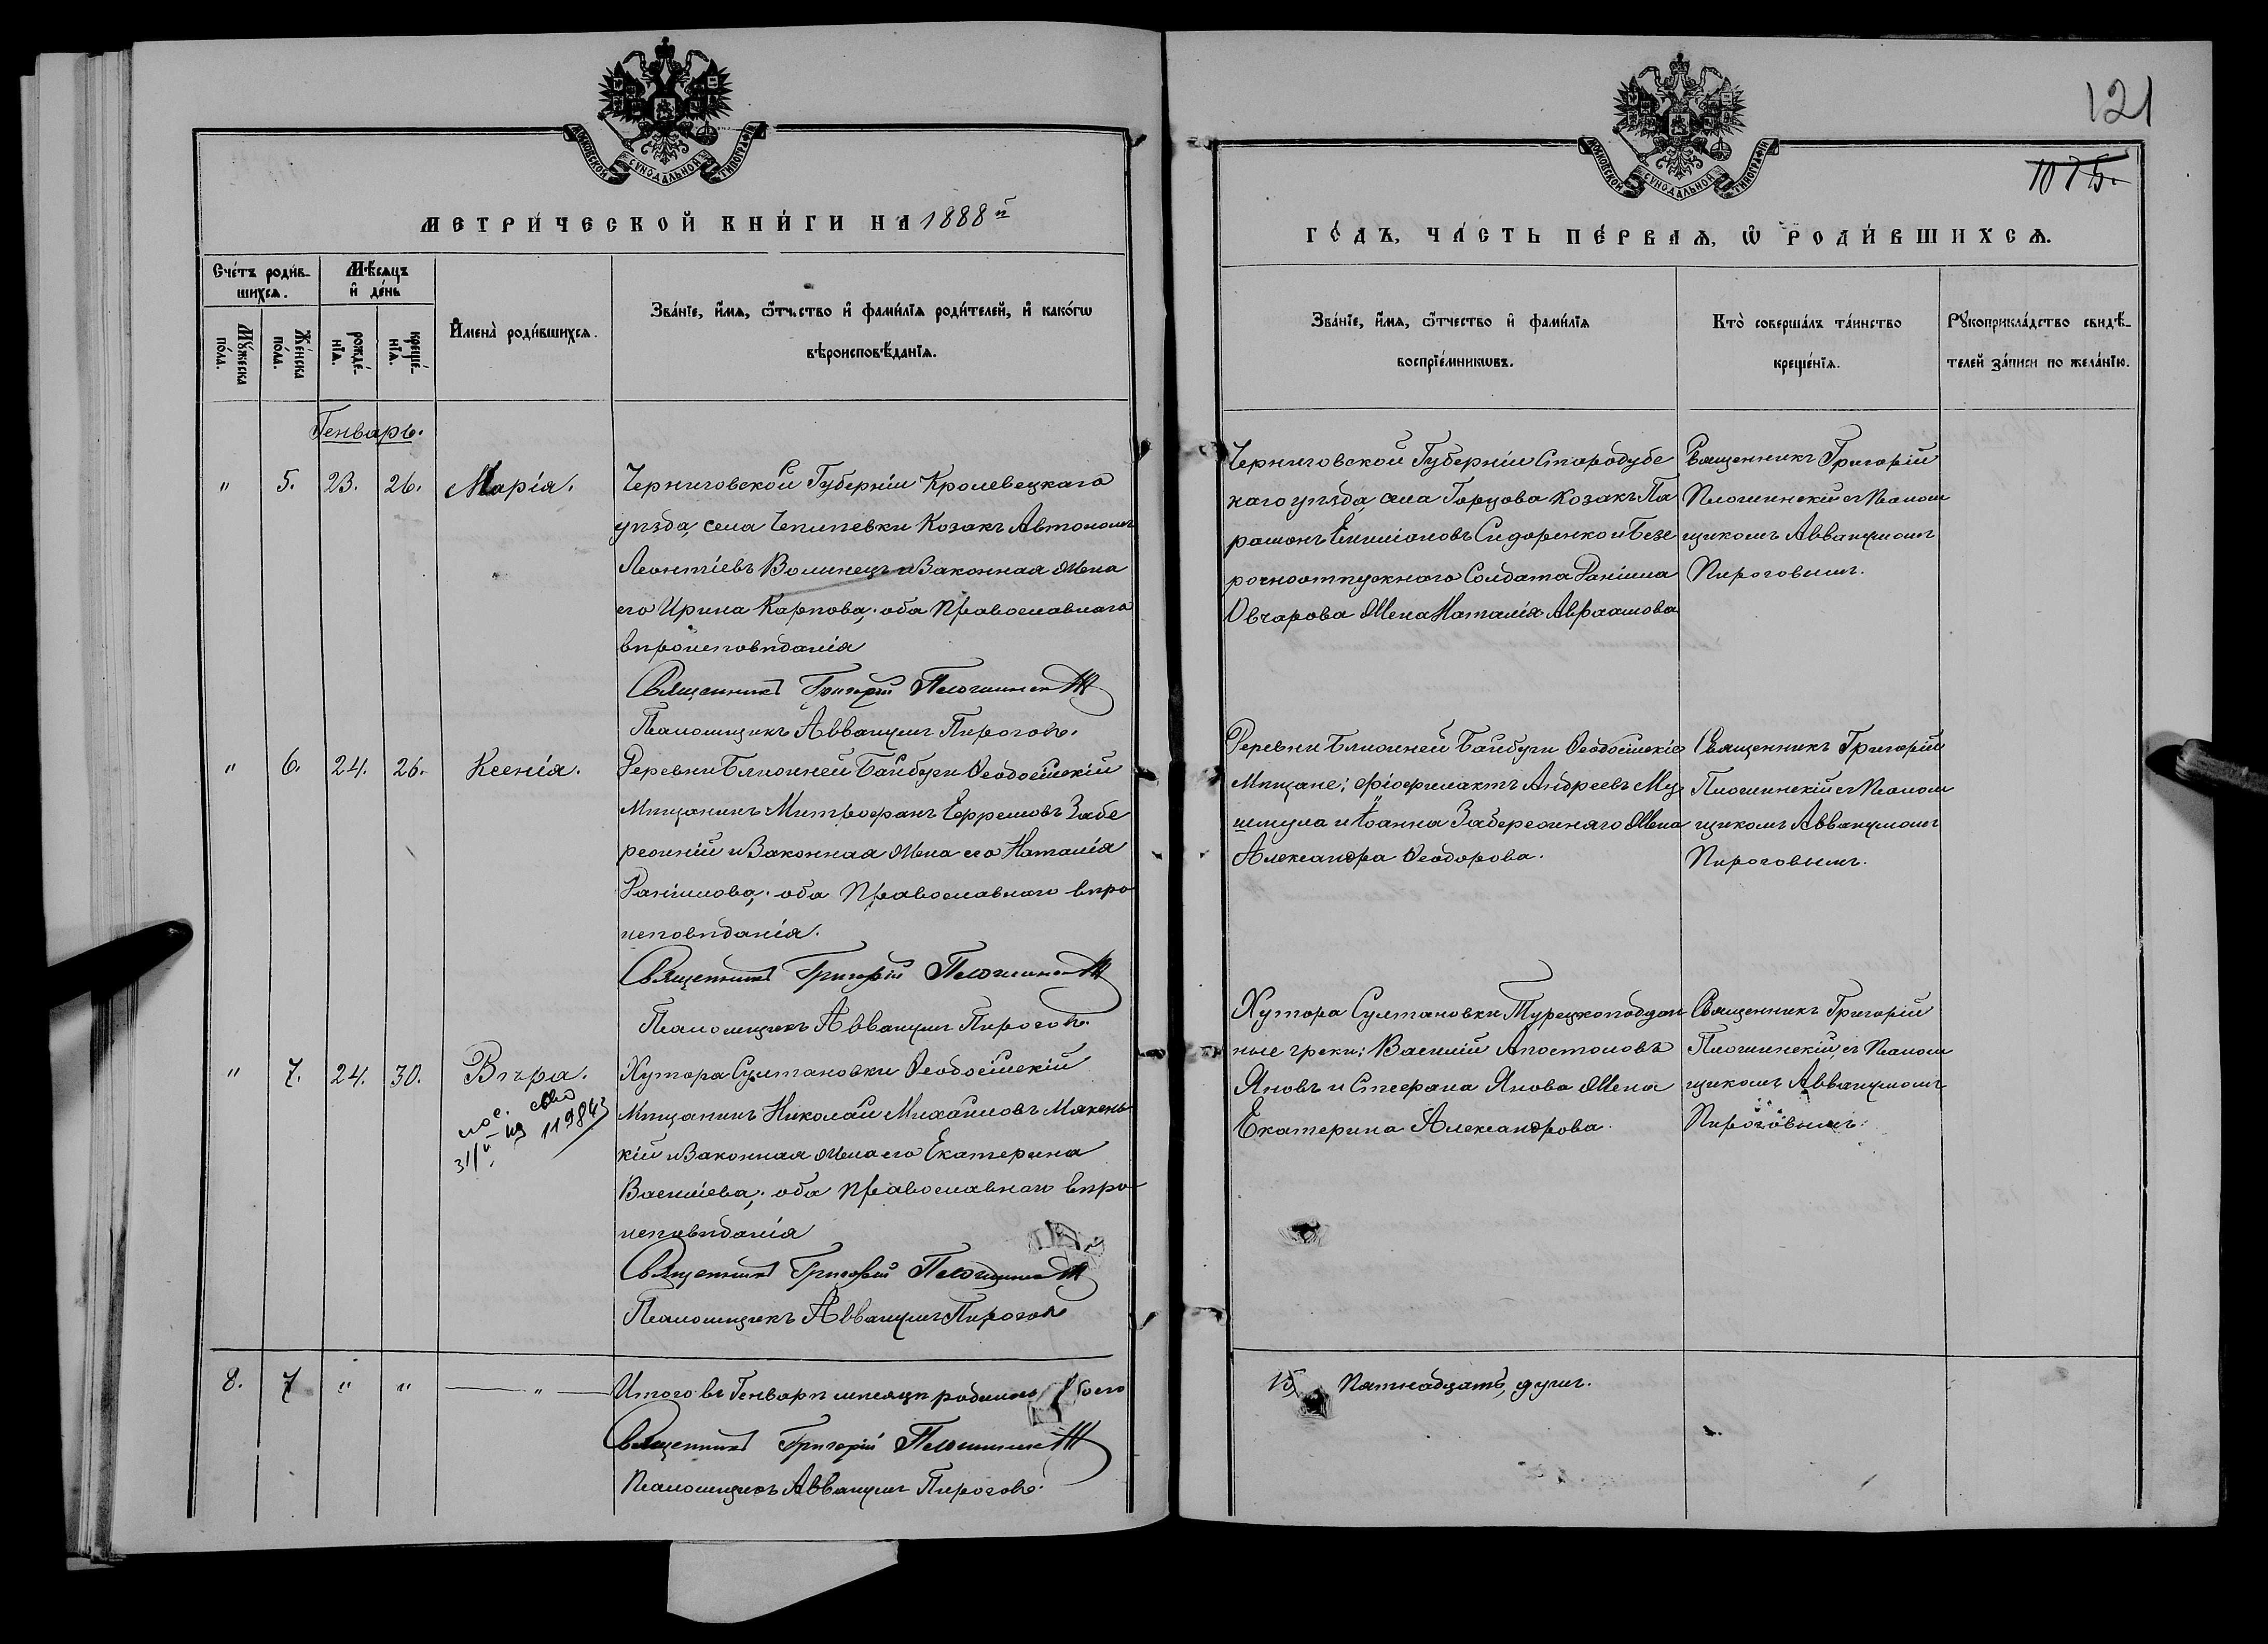 МОСКОВСКОЙ СУНОДАЛЬНОЙ ТИПОГРАФІИ
МЕТРИ́ЧЕСКОЙ КНИ́ГИ НА 1888 й
Счётъ роди́в-
шихсѧ.
Мѣ́сѧцъ
и҆ де́нь
Мꙋ́жеска
по́ла.
Же́нска
по́ла.
рожде́-
нїѧ.
креще́-
нїѧ.
И҆мена̀ роди́вшихсѧ.
Зва́нїе, и҆́мѧ, ѻ҆́тчество и҆ фами́лїѧ роди́телей, и҆ како́гѡ
вѣроисповѣ́данїѧ.
Генварь.
" 5. 23. 26. Марія.
Черниговской Губерніи Кролевецкаго
уѣзда, села Чепилевки Козакъ Автономъ
Леонтіевъ Волинецъ и Законная Жена
его Ирина Карпова; оба Православнаго
вѣроисповѣданія
Священникъ Григорій Плошинскій
Псаломщикъ Аввакумъ Пироговъ.
" 6. 24. 26. Ксенія.
Деревни Ближней Байбуги Ѳеодосійскій
Мѣщанинъ Митрофанъ Ефремовъ Забе
режній и Законная Жена его Наталія
Даніилова; оба Православнаго вѣро
исповѣданія.
Священникъ Григорій Плошинскій
Псаломщикъ Аввакумъ Пироговъ.
" 7. 24. 30. Вѣра.
31/ 11984
Хутора Султановки Ѳеодосійскій
Мѣщанинъ Николай Михайловъ Мякень
кій и Законная Жена его Екатерина
Васильева; оба Православнаго вѣро
исповѣданія
Священникъ Григорій Плошинскій
Псаломщикъ Аввакумъ Пироговъ
8. 7 " " "
Итого въ Генварѣ мѣсяцѣ родилось обоего
Священникъ Григорій Плошинскій
Псаломщикъ Аввакумъ Пироговъ.
121
1075.
МОСКОВСКОЙ СУНОДАЛЬНОЙ ТИПОГРАФІИ
ГО́ДЪ, ЧА́СТЬ ПЕ́РВАѦ, Ѡ҆ РОДИ́ВШИХСѦ.
Зва́нїе, и҆́мѧ, ѻ҆́тчество и҆ фами́лїѧ
воспрїе́мникѡвъ.
Кто̀ соверша́лъ та́инство
креще́нїѧ.
Рꙋкоприкла́дство свидѣ́-
телей за́писи по жела́нїю.
Черниговской Губерніи Стародубс
каго уѣзда, села Горцова Козакъ Па
рамонъ Емиліановъ Сидоренко и Безс
рочноотпускнаго Солдата Даніила
Овчарова Жена Наталія Авраамова
Священникъ Григорій
Плошинскій съ Псалом
щикомъ Аввакумомъ
Пироговымъ.
Деревни Ближней Байбуги Ѳеодосійскіе
Мѣщане; Ѳеофилактъ Андреевъ
и Іоанна Забережняго Жена
Александра Ѳеодорова.
Священникъ Григорій
Плошинскій съ Псалом
щикомъ Аввакумомъ
Пироговымъ.
Хутора Султановки Турецкоподдан
ные греки; Василій Апостоловъ
Яновъ и Стефана Янова Жена
Екатерина Александрова.
Священникъ Григорій
Плошинскій съ Псалом
щикомъ Аввакумомъ
Пироговымъ.
15, Пятнадцать, душъ.